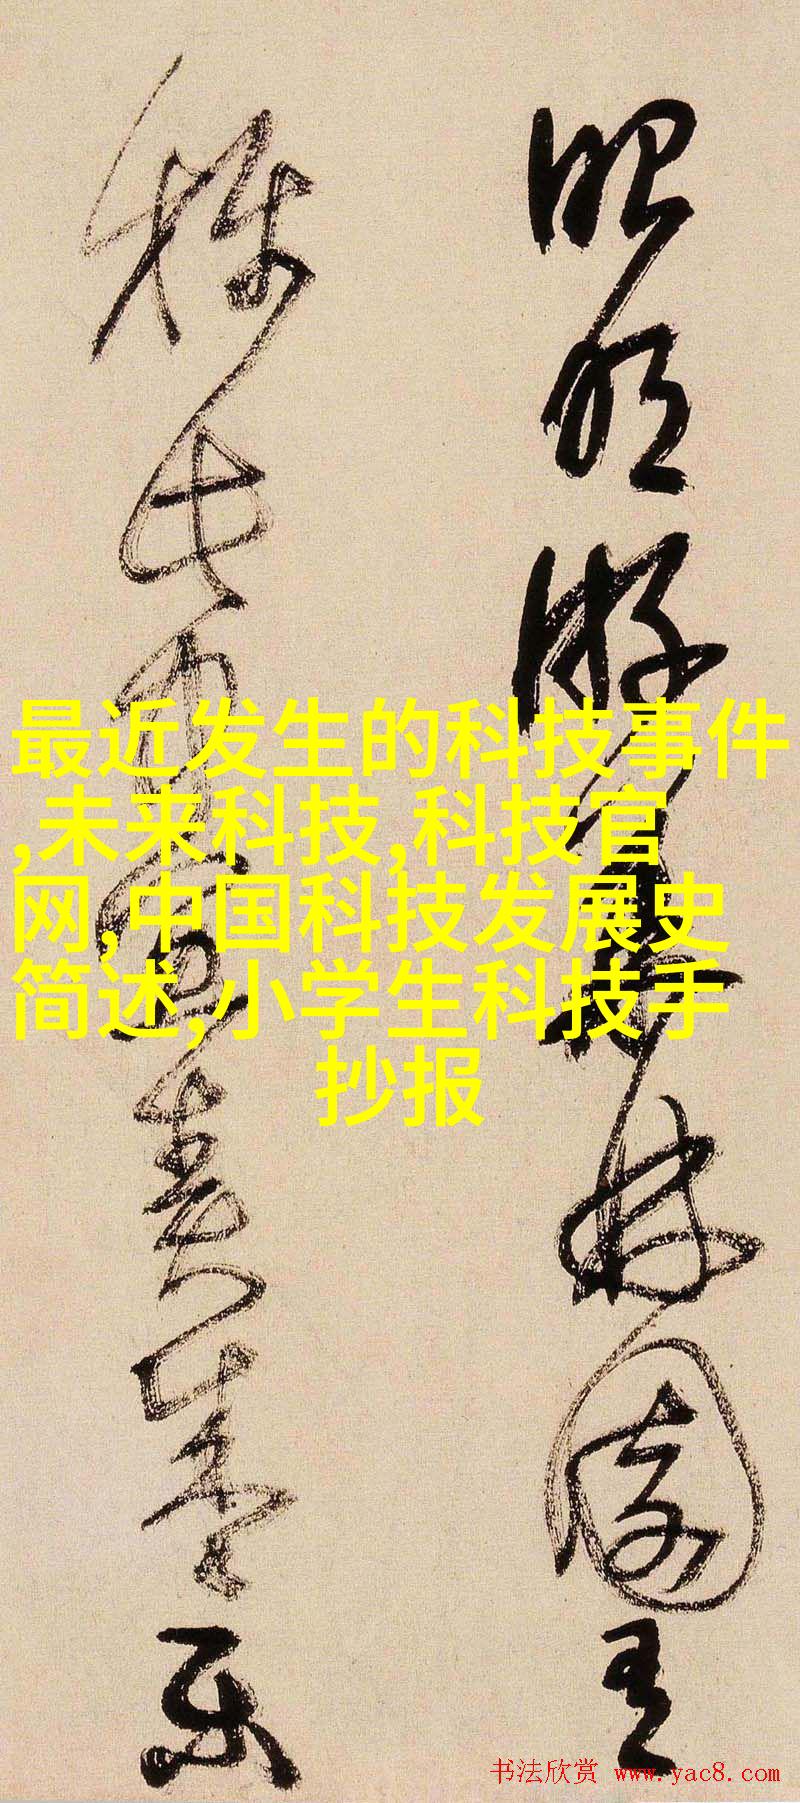 昭明游華林園
稱此中宜奏樂
最近发生的科技事件
,未来科技,科技官
网,中国科技发展史
简述,小学生科技手
抄报
书法欣赏 www.yac8.com